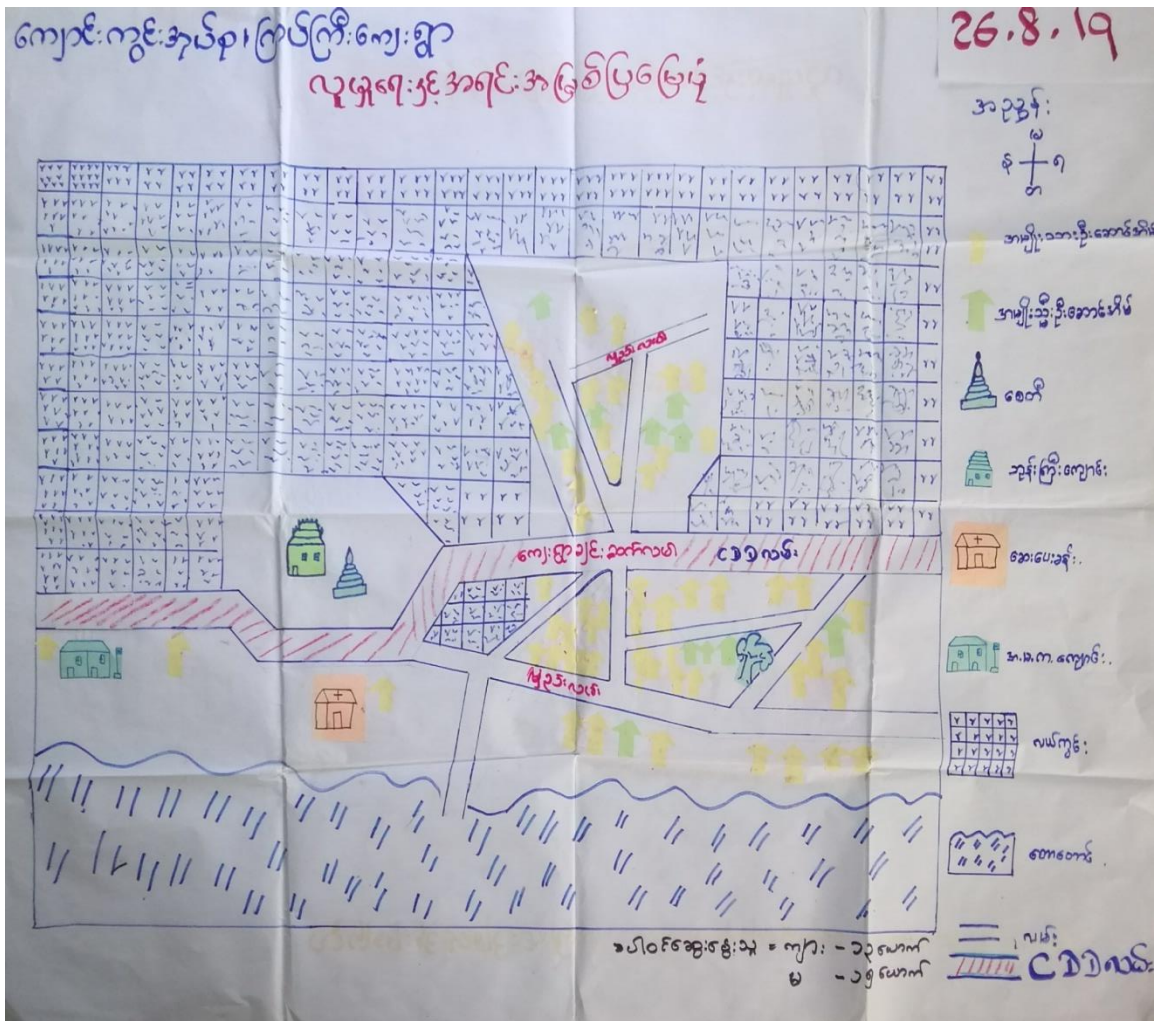 ကျောင်းကွင်းအုပ်စု၊ ကြပ်ကြီးကျေးရွာ
26.8.19
လူမှုရေးနှင့်အရင်းအမြစ်ပြမြေပုံ
အညွှန်း
မ
န
ရ
တ
အမျိုးသားဦးဆောင်အိမ်
အမျိုးသ္မီးဦးဆောင်အိမ်
စေတီ
ဘုန်းကြီးကျောင်း
ဆေးပေးခန်း
အ.မ.က.ကျောင်း
လယ်ကွင်း
တောတောင်
လမ်း
CDDလမ်း
ကျေးရွာချင်းဆက်လမ်း
CDDလမ်း
ပါဝင်ဆွေးနွေးသူ = ကျား - ၁၃ယောက်
မ - ၁၅ယောက်